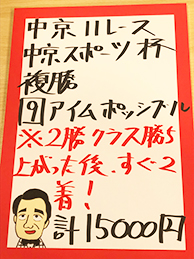 中京11レース
中京スポーツ杯
複勝
9アイムポッシブル
※2勝クラス勝ち
上がった後、すぐ2
着!
計15000円